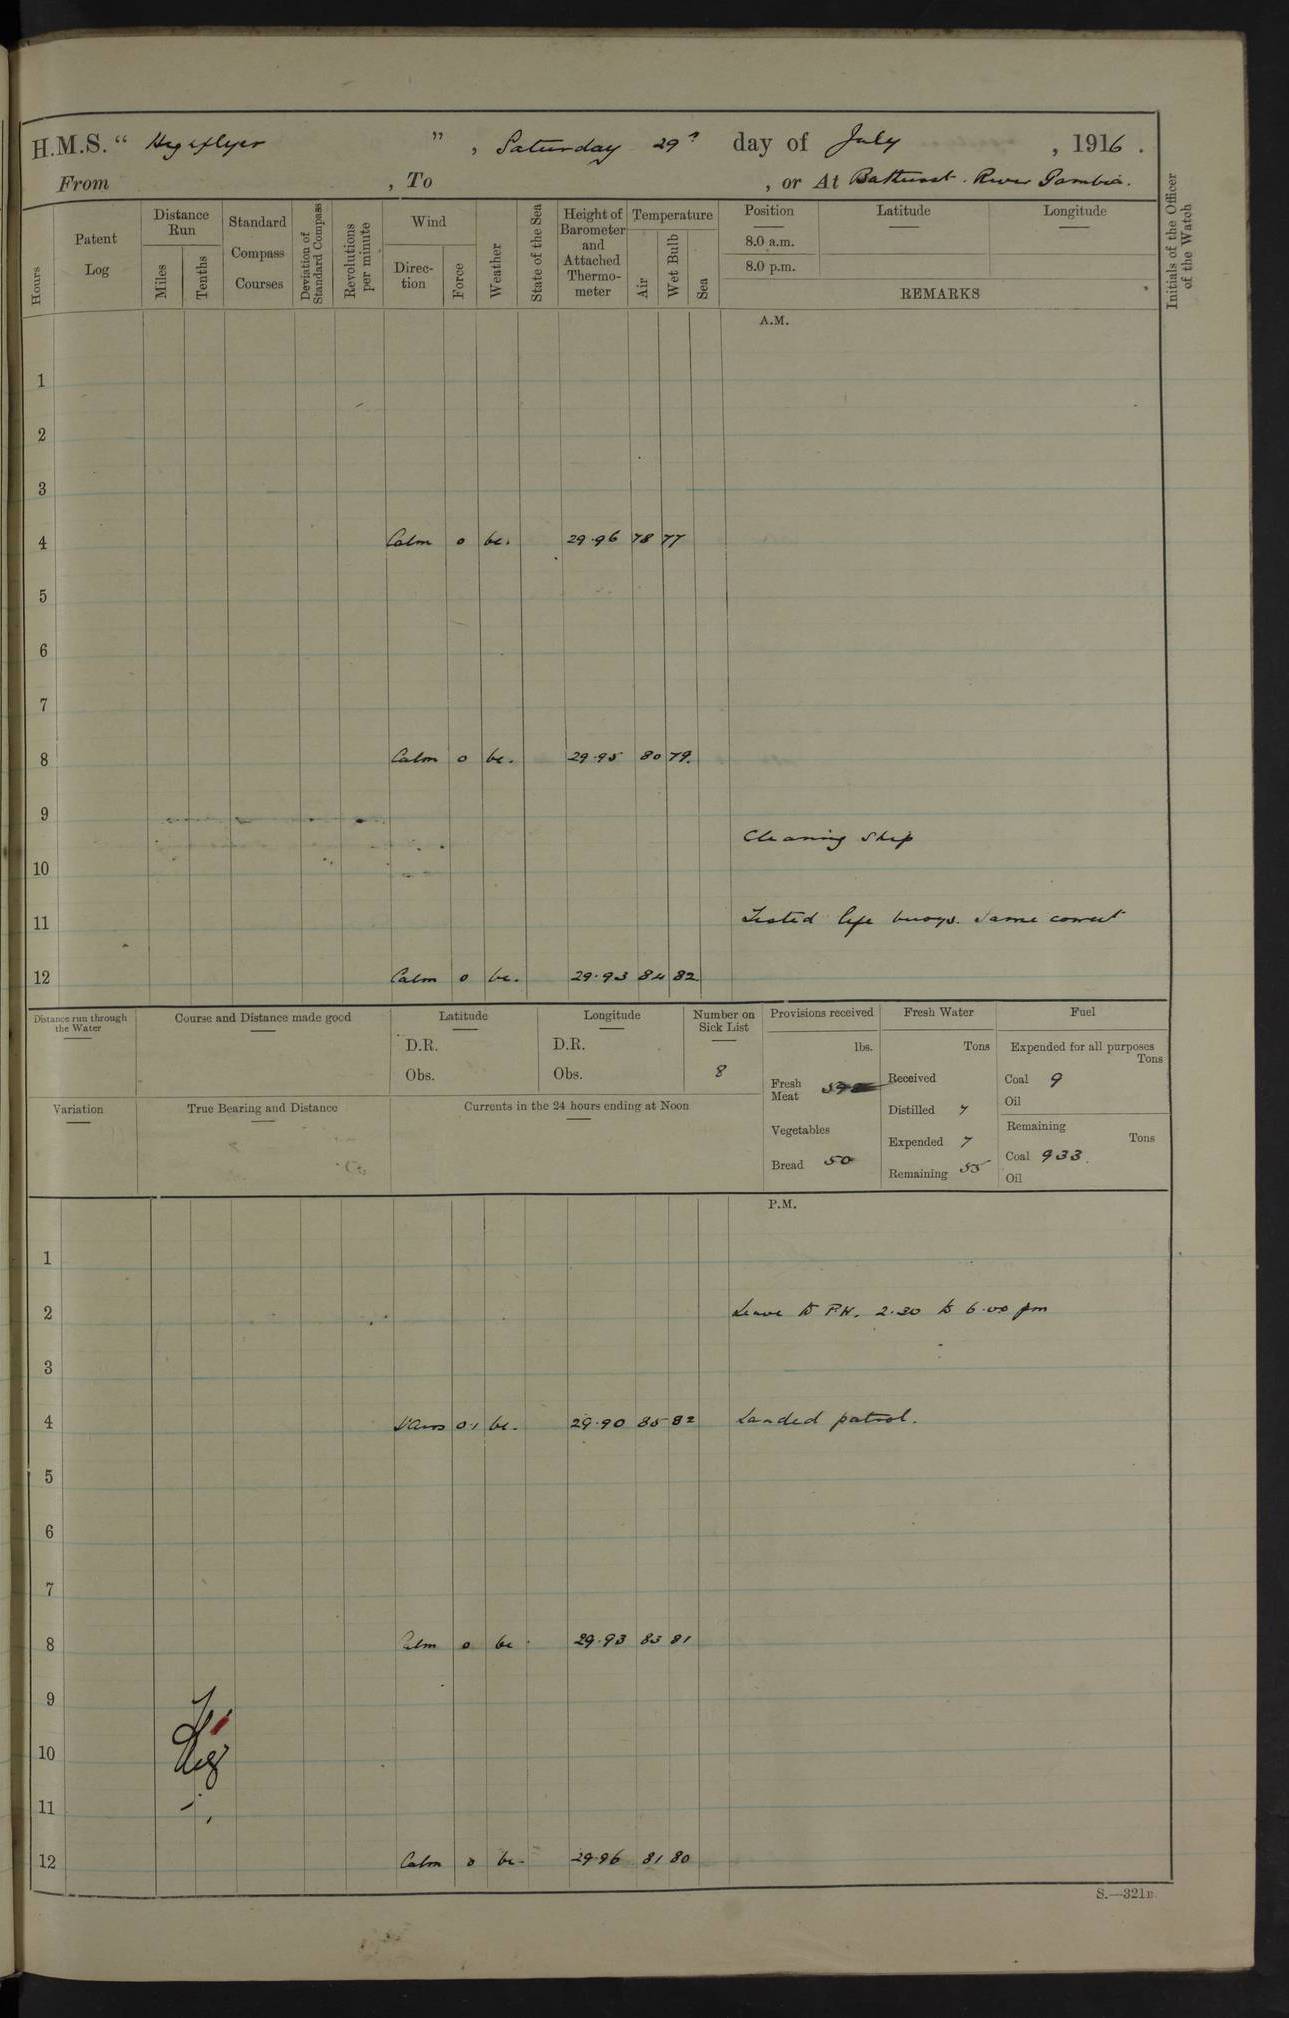 H.M.S. “ Highflyer ”, Saturday 29th day of July, 1916.
From , To , or At Bathurst. River Gambia.
Hours
Patent Log
Distance Run
Miles
Tenths
Standard Compass Courses
Deviation of Standard Compass
Revolutions per minute
Wind
Direction
Force
Weather
State of the Sea
Height of Barometer and Attached Thermometer
Temperature
Air
Wet Bulb
Sea
Position
8.0 a.m.
8.0 p.m.
Latitude
Longitude
REMARKS
Initials of the Officer of the Watch
A.M.
1
2
3
4 Calm 0 bc. 29.96 78 77
5
6
7
8 Calm 0 bc. 29.95 80 79.
9
Cleaning ship
10
11 Tested life buoys. Same correct
12 Calm 0 bc. 29.93 84 82
Distance run through the Water
Course and Distance made good
Latitude
D.R.
Obs.
Longitude
D.R.
Obs.
Number on Sick List
8
Provisions received
lbs.
Fresh Meat
Vegetables
Bread 50
Fresh Water
Tons
Received
Distilled 7
Expended 7
Remaining 55
Fuel
Expended for all purposes
Tons
Coal 9
Oil
Remaining
Tons
Coal 933.
Oil
Variation
True Bearing and Distance
Currents in the 24 hours ending at Noon
P.M.
1
2 Leave to 2.30 to 6.00 pm
3
4 0.1 bc. 29.90 85 82 Landed patrol.
5
6
7
8 Calm 0 bc 29.93 83 81
9
10
11
12 Calm 0 bc. 29.96 81 80
S.—321B